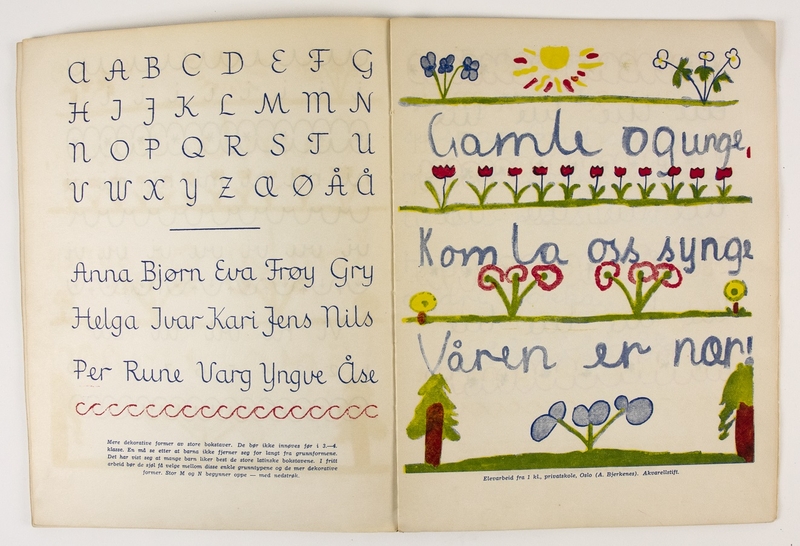 A A B C D E F G
H I J K L M M N
N O P Q R S T U
V W X Y Z Æ Ø Å Å
Anna Bjørn Eva Frøy Gry
Helga Ivar Kari Jens Nils
Per Rune Varg Yngve Åse
Mere dekorative former av store bokstaver. De bør ikke innøves før i 3.—4.
klasse. En må se etter at barna ikke fjerner seg for langt fra grunnformene.
Det har vist seg at mange barn liker best de store latinske bokstavene. I fritt
arbeid bør de sjøl få velge mellom disse enkle grunntypene og de mer dekorative
former. Stor M og N begynner oppe — med nedstrøk.
Gamle og unge,
Kom la oss synge
Våren er nær!
Elevarbeid fra 1 kl., privatskole, Oslo (A. Bjerkenes). Akvarellstift.